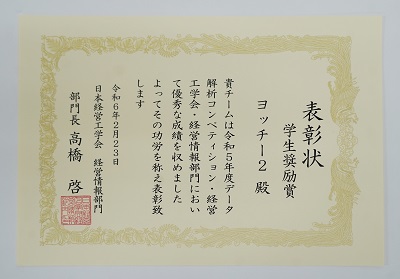 表彰状
学生奨励賞
ヨッチー2 殿
貴チームは令和5年度データ
解析コンペティション・経営
工学会・経営情報部門におい
て優秀な成績を収めました
よってその功労を称え表彰致
します
令和6年2月23日
日本経営工学会 経営情報部門
部門長 高橋 啓